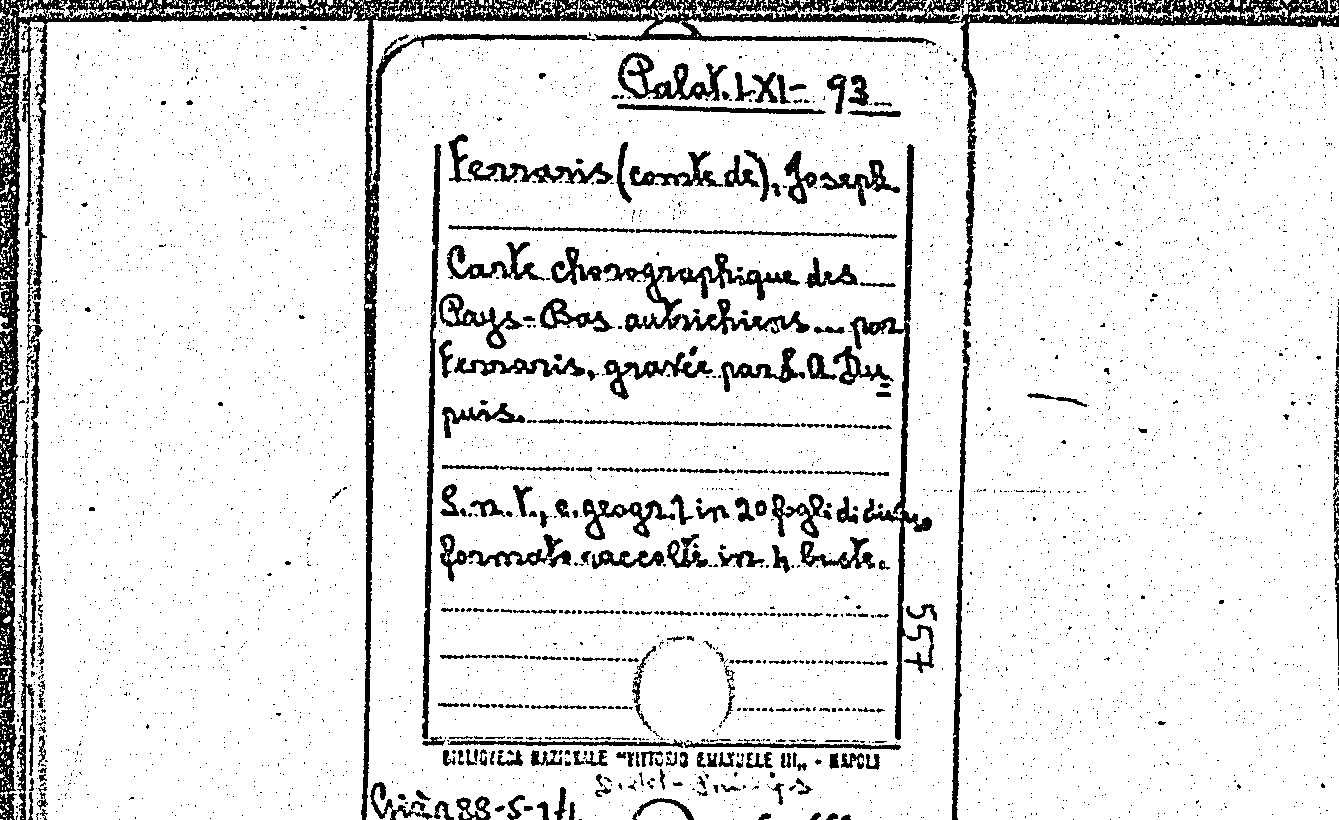 Palat. LXI- 93
Ferraris (comte de), Joseph.
Carte chorographique des
Pays-Bas autrichiens... par
Ferraris, gravée par L. A. Du=
puis.
S.n.t., c. geogr. 1 in 20 fogli di diverso
formato raccolti in 4 buste.
557
BIBLIOTECA NAZIONALE "VITTORIO EMANUELE III„ - NAPOLI
Già 88-5-